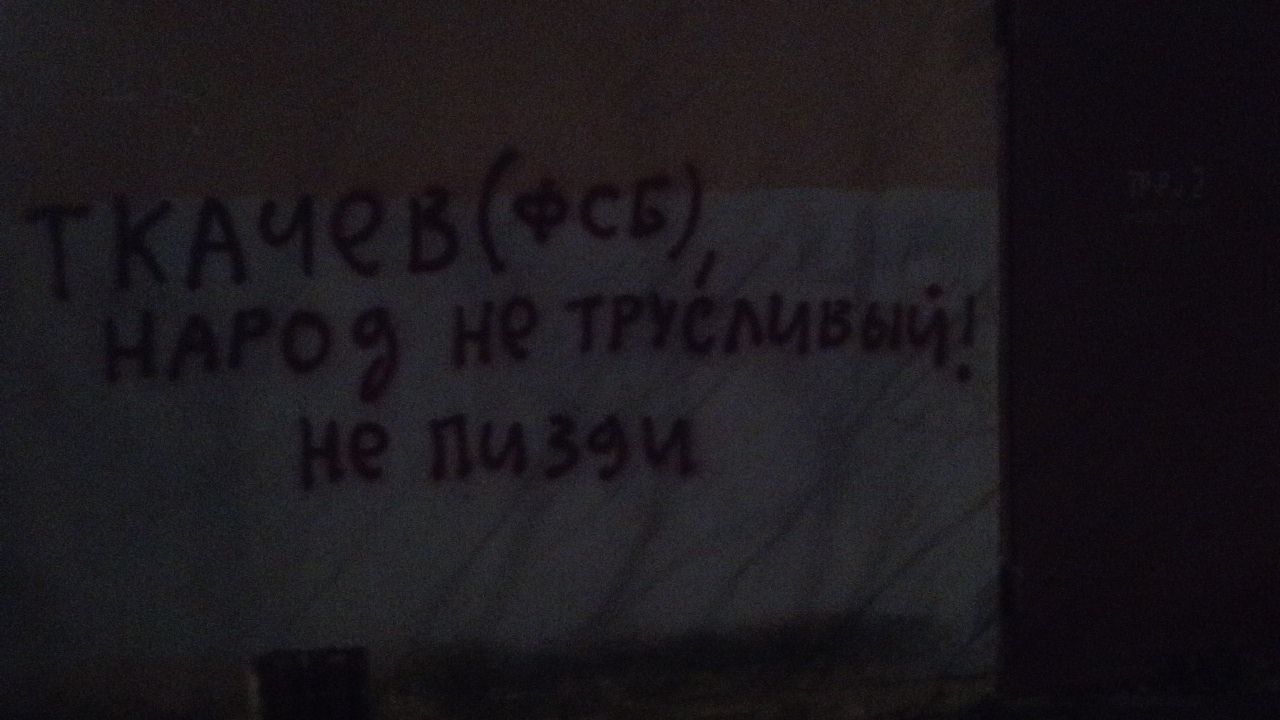 ТКАЧЕВ (ФСБ),
НАРОД НЕ ТРУСЛИВЫЙ!
НЕ ПИЗДИ